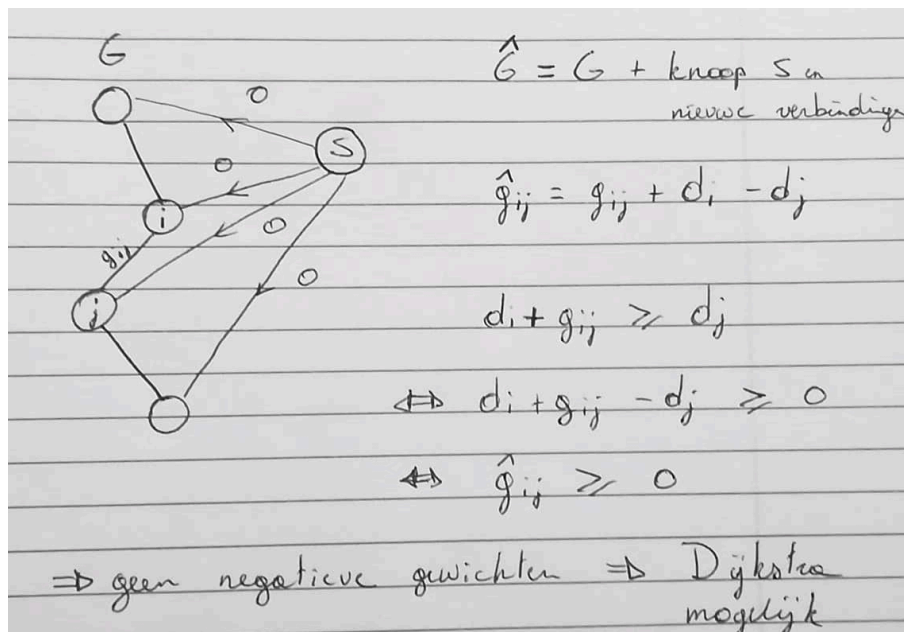 G
0
0
0
0
S
i
g_ij
j
Ĝ = G + knoop S en
nieuwe verbindingen
ĝ_ij = g_ij + d_i - d_j
d_i + g_ij ⩾ d_j
⇔ d_i + g_ij - d_j ⩾ 0
⇔ ĝ_ij ⩾ 0
⇒ geen negatieve gewichten ⇒ Dijkstra
mogelijk